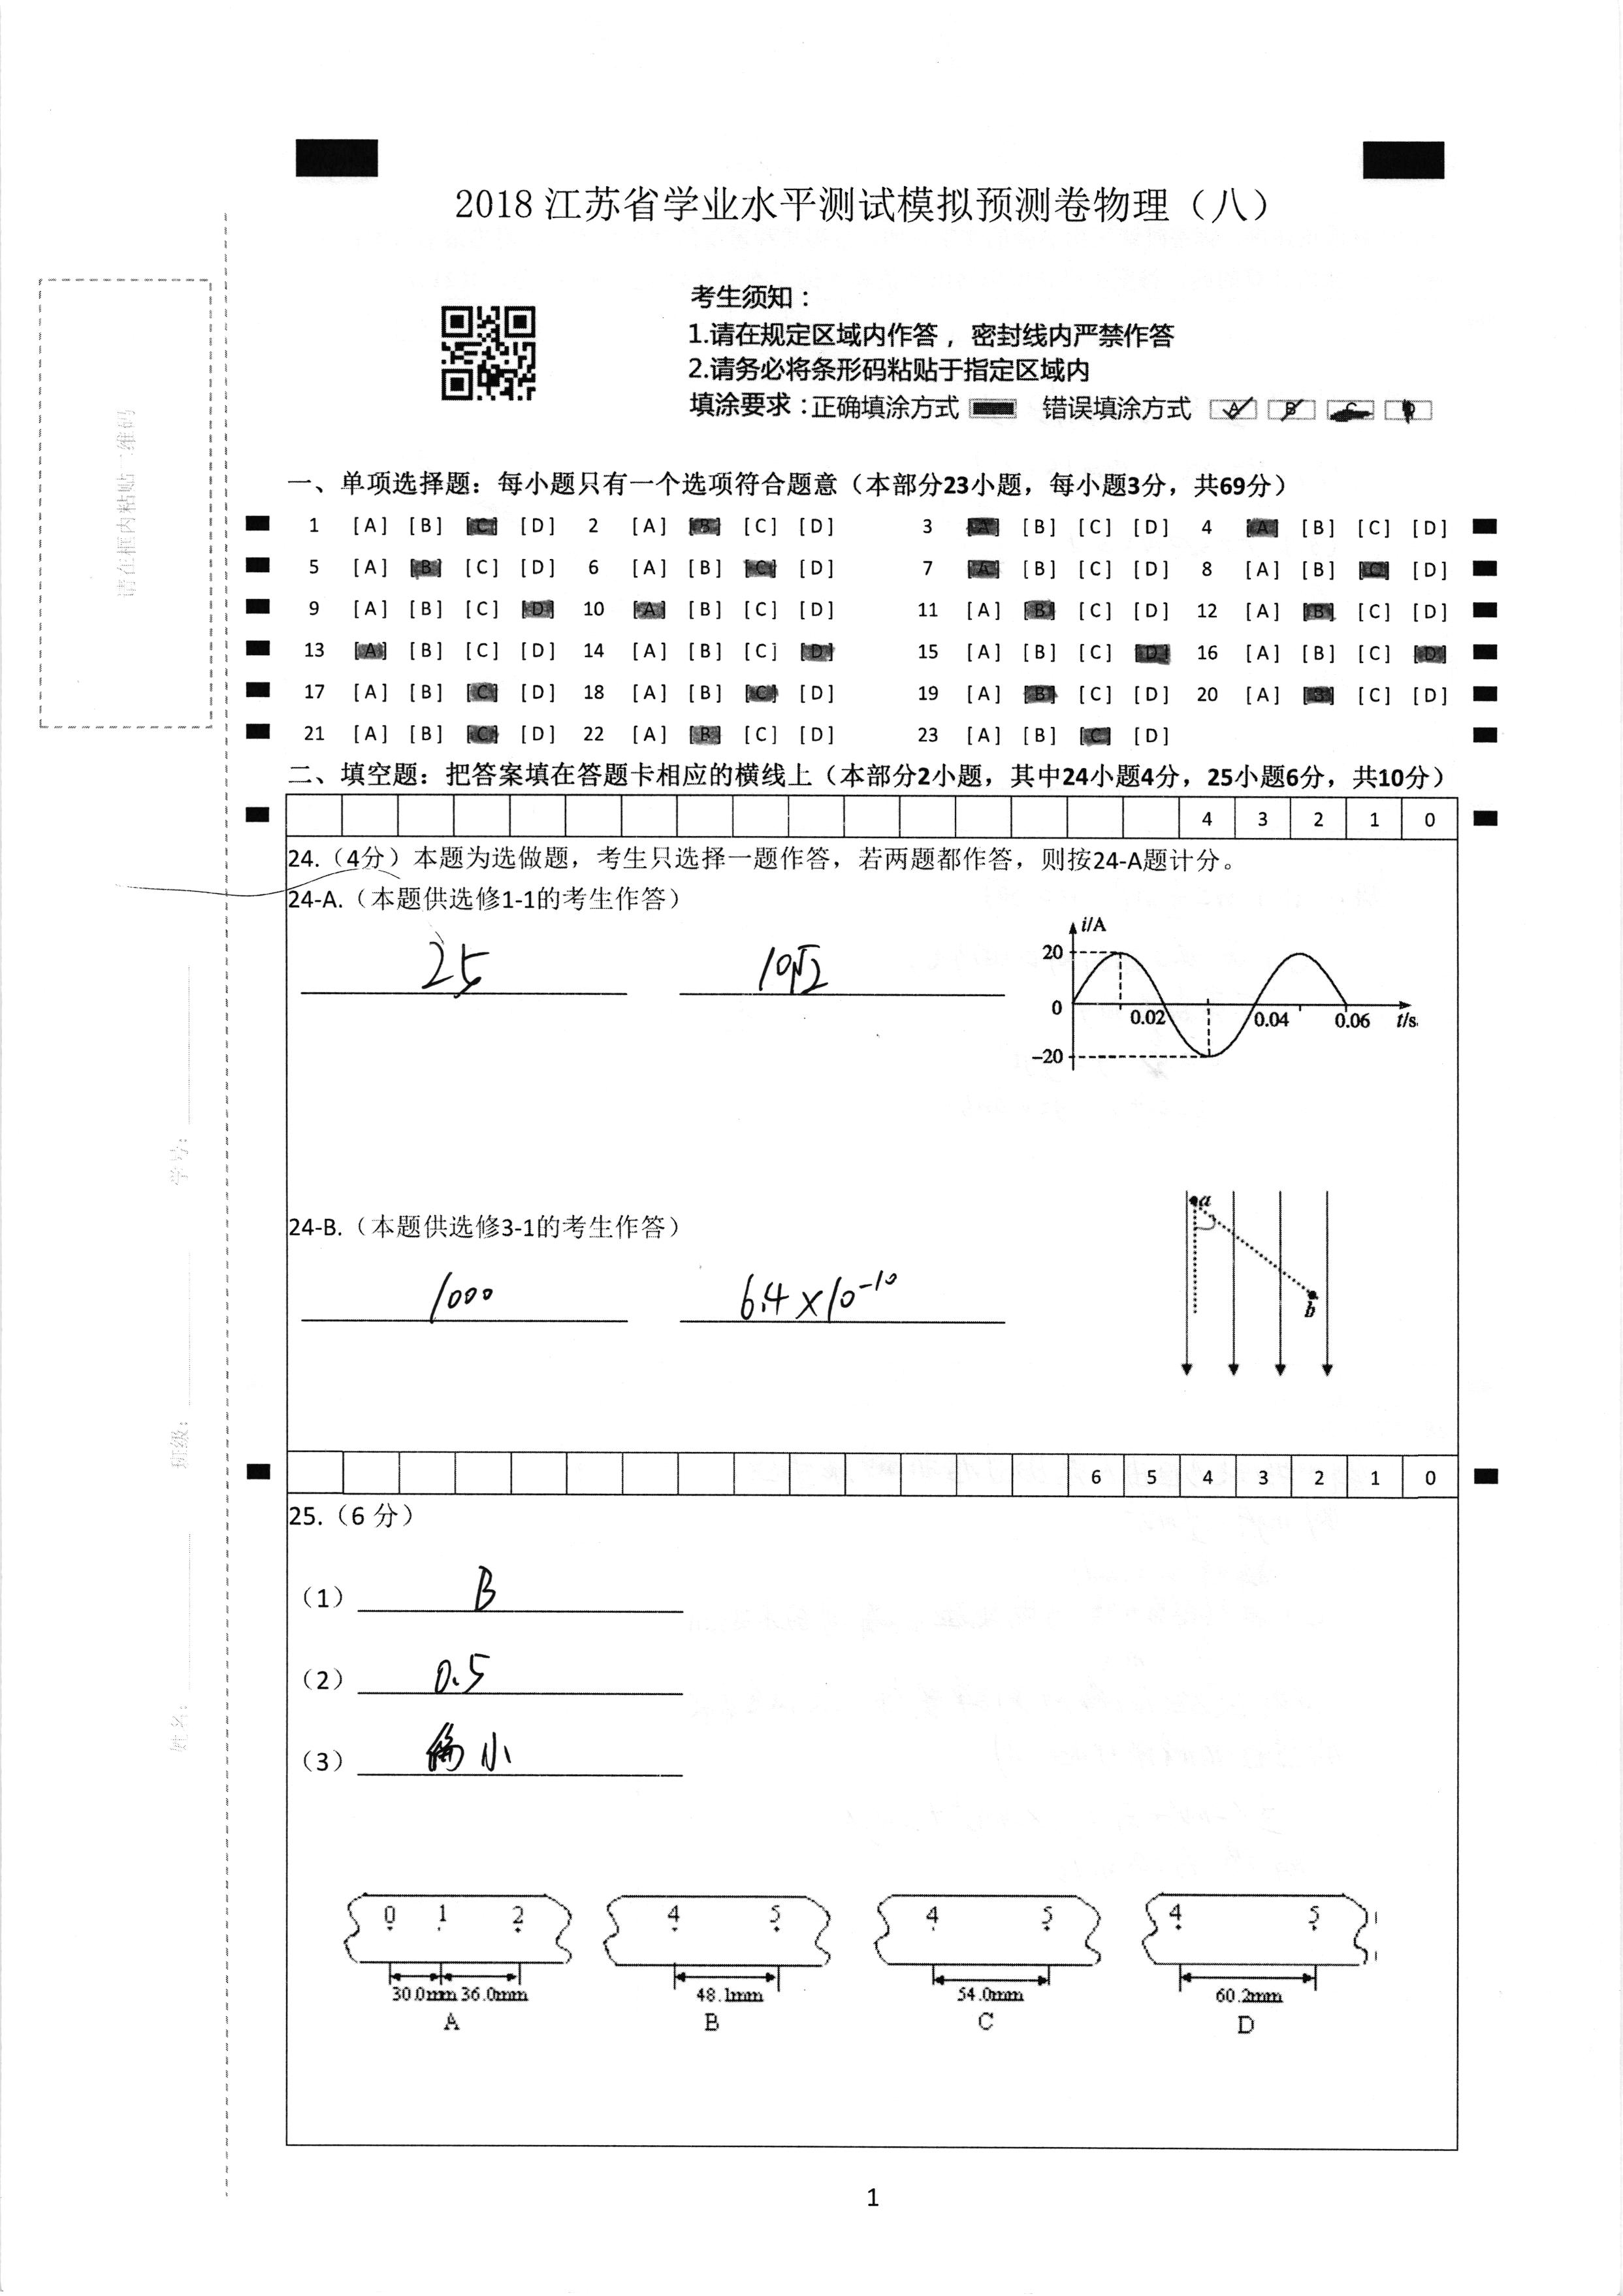 2018 江苏省学业水平测试模拟预测卷物理（八）
考生须知：
1.请在规定区域内作答，密封线内严禁作答
2.请务必将条形码粘贴于指定区域内
填涂要求：正确填涂方式 错误填涂方式 A B C D
请在框内粘贴二维码
一、单项选择题：每小题只有一个选项符合题意（本部分23小题，每小题3分，共69分）
1 [A] [B] [C] [D] 2 [A] [B] [C] [D] 3 [A] [B] [C] [D] 4 [A] [B] [C] [D]
5 [A] [B] [C] [D] 6 [A] [B] [C] [D] 7 [A] [B] [C] [D] 8 [A] [B] [C] [D]
9 [A] [B] [C] [D] 10 [A] [B] [C] [D] 11 [A] [B] [C] [D] 12 [A] [B] [C] [D]
13 [A] [B] [C] [D] 14 [A] [B] [C] [D] 15 [A] [B] [C] [D] 16 [A] [B] [C] [D]
17 [A] [B] [C] [D] 18 [A] [B] [C] [D] 19 [A] [B] [C] [D] 20 [A] [B] [C] [D]
21 [A] [B] [C] [D] 22 [A] [B] [C] [D] 23 [A] [B] [C] [D]
二、填空题：把答案填在答题卡相应的横线上（本部分2小题，其中24小题4分，25小题6分，共10分）
4 3 2 1 0
24.（4分）本题为选做题，考生只选择一题作答，若两题都作答，则按24-A题计分。
24-A.（本题供选修1-1的考生作答）
25 10√2
i/A
20
0 0.02 0.04 0.06 t/s
-20
学号：
24-B.（本题供选修3-1的考生作答）
1000 6.4×10⁻¹⁰
a
b
班级：
6 5 4 3 2 1 0
25.（6 分）
（1） B
（2） 0.5
（3） 偏小
姓名：
0 1 2 4 5 4 5 4 5
30.0mm 36.0mm 48.1mm 54.0mm 60.2mm
A B C D
1